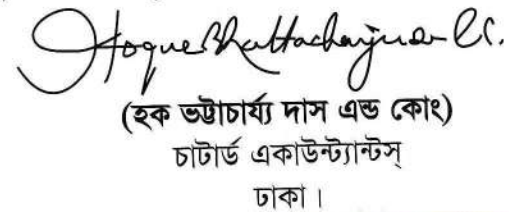 Hoque Bhattacharjee
(হক ভট্টাচার্য্য দাস এন্ড কোং)
চাটার্ড একাউন্ট্যান্টস্
ঢাকা।